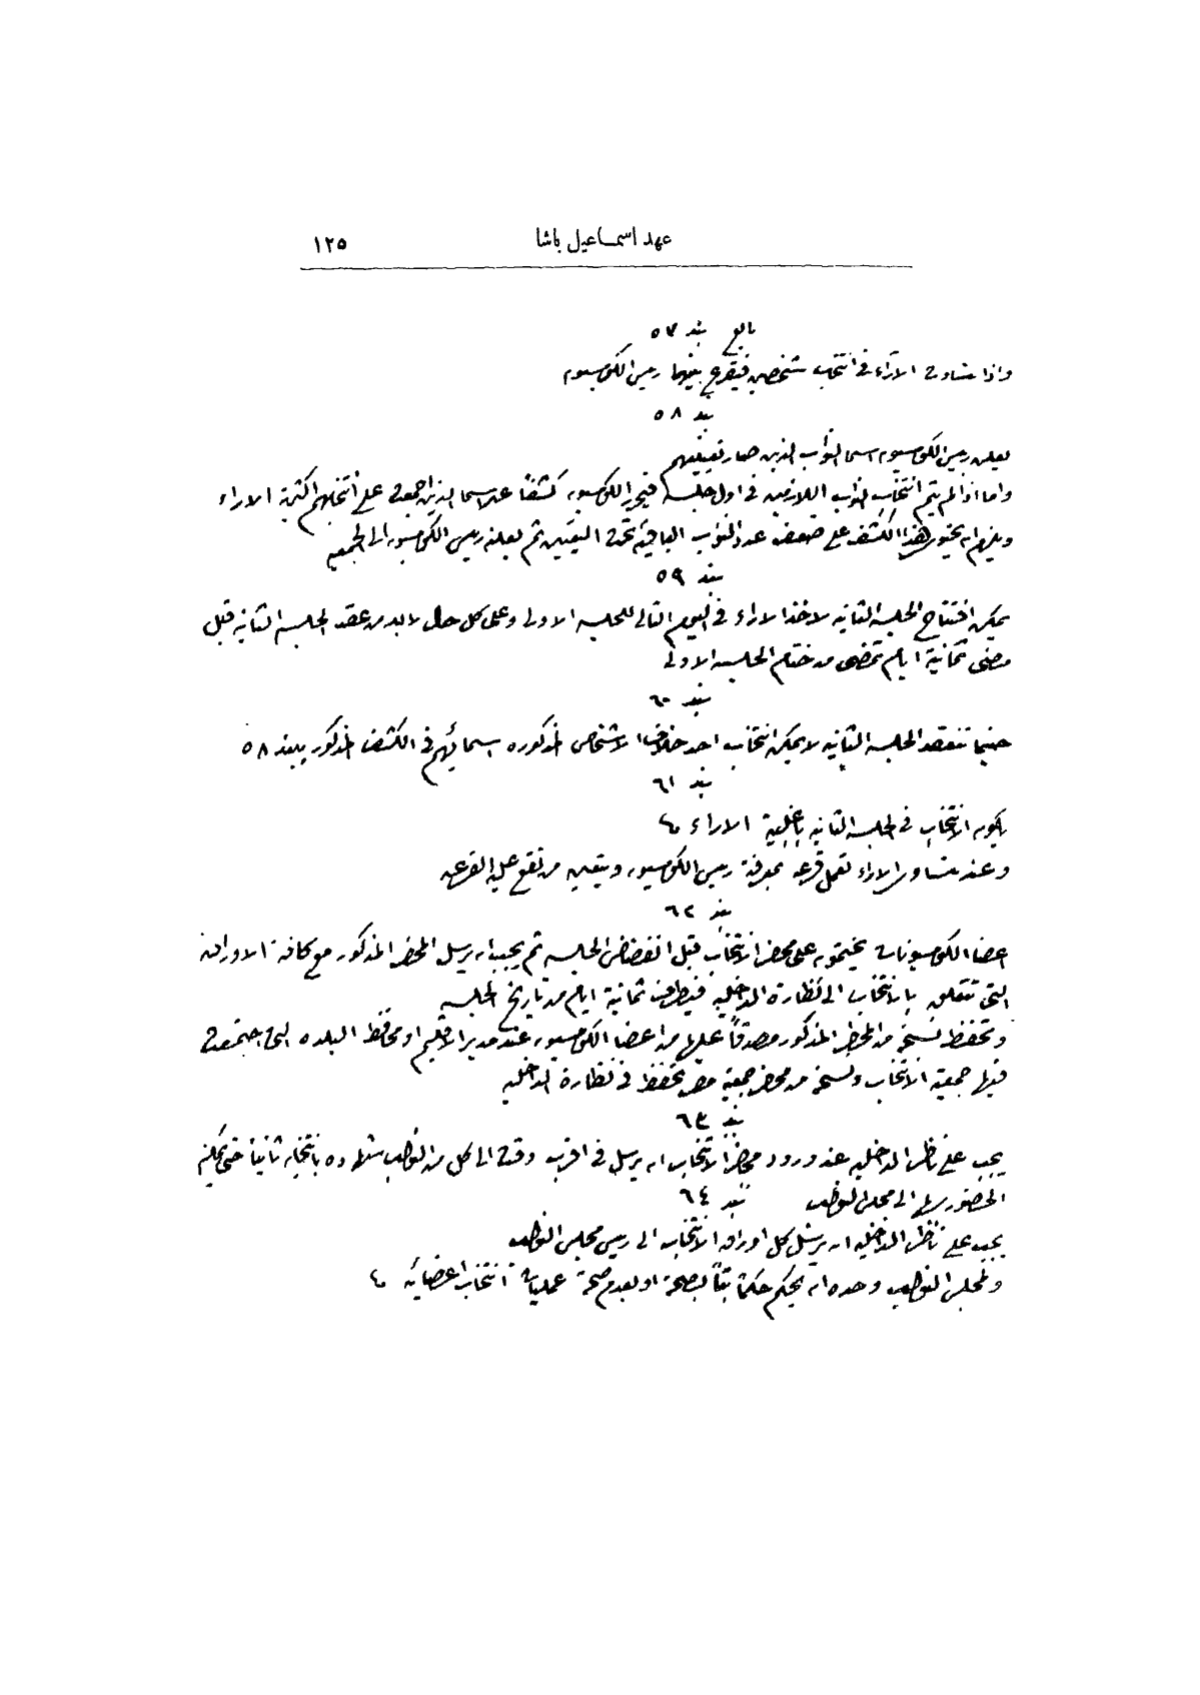 عهد اسماعيل باشا ١٢٥
تابع بند ٥٧
واذا تساوت الآراء فى انتخاب شخصين فيقرع بينهما رئيس الكومسيون
بند ٥٨
يعلن رئيس الكومسيون اسما النواب الذين صار تعيينهم
واما اذا لم يتم انتخاب النواب اللازمين فى اول جلسة فيحرر الكومسيون كشفاً عن اسما الذين اجمعت على انتخابهم اكثرية الاراء
ويلزم ان يحتوى هذا الكشف على ضعف عدد النواب الباقية تحت التعيين ثم يعلنه رئيس الكومسيون الى الجمعيه
بند ٥٩
يمكن افتتاح الجلسه الثانيه لاخذ الاراء فى اليوم التالى للجلسه الاولى وعلى كل حال لابد من عقد الجلسه الثانيه قبل
مضى ثمانية ايام تمضى من ختام الجلسه الاولى
بند ٦٠
حينما تنعقد الجلسه الثانيه لا يمكن انتخاب احد خلاف الاشخاص المذكوره اسمائهم فى الكشف المذكور ببند ٥٨
بند ٦١
يكون الانتخاب فى الجلسه الثانيه باغلبية الاراء
وعند تساوى الاراء تعمل قرعه بمعرفة رئيس الكومسيون ويتعين من تقع عليه القرعه
بند ٦٢
اعضا الكومسيونات يختمون على محضر الانتخاب قبل انفضاض الجلسه ثم يجب ان يرسل المحضر المذكور مع كافة الاوراق
التى تتعلق بالانتخاب الى نظارة الداخليه فى ظرف ثمانية ايام من تاريخ الجلسه
وتحفظ نسخه من المحضر المذكور مصدقاً عليها من اعضا الكومسيون عند مدير الاقليم او محافظ البلده التى اجتمعت
فيها جمعية الانتخاب ونسخه من محضر جمعية مصر تحفظ فى نظارة الداخليه
بند ٦٣
يجب على ناظر الداخليه عند ورود محاضر الانتخاب ان يرسل فى اقرب وقت الى كل من النواب شهاده بانتخابه نائباً حتى يمكنه
الحضور بها الى مجلس النواب بند ٦٤
يجب على ناظر الداخليه ان يرسل كل اوراق الانتخاب الى رئيس مجلس النواب
ولمجلس النواب وحده ان يحكم حكماً بتاً بصحة او بعدم صحة عمليات انتخاب اعضائه